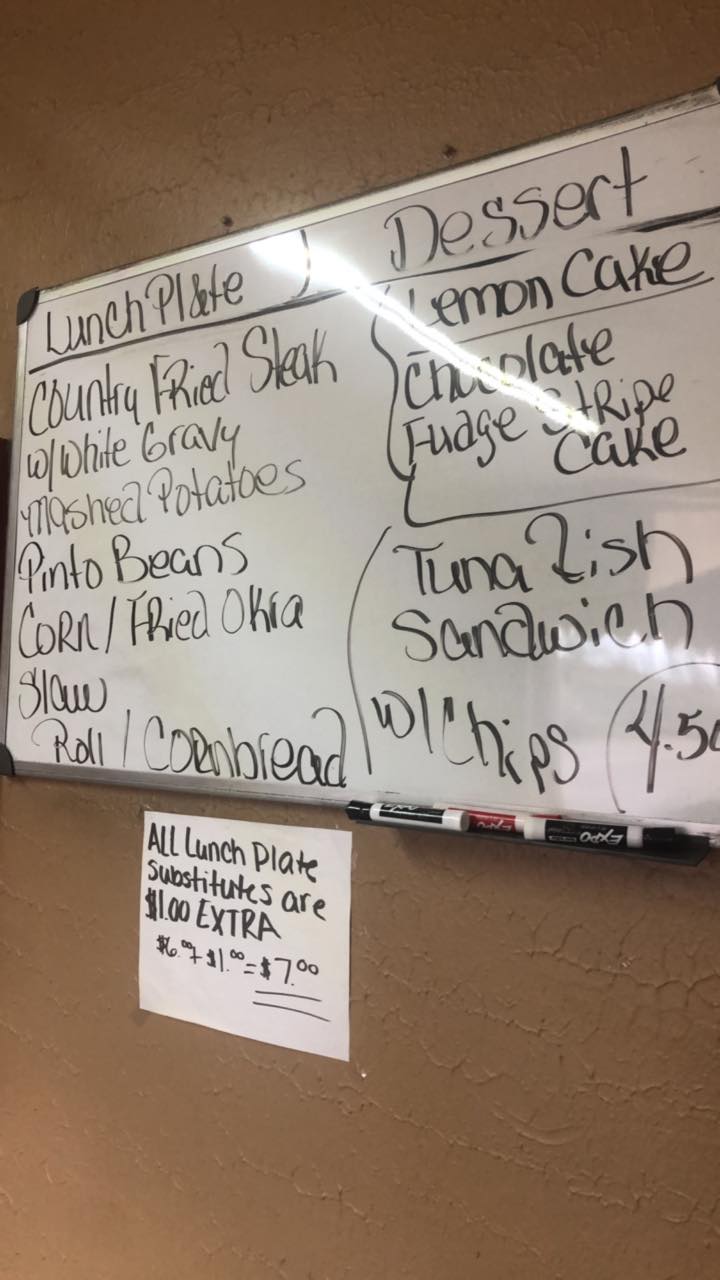 Lunch Plate
Country Fried Steak
w/White Gravy
Mashed Potatoes
Pinto Beans
Corn / Fried Okra
Slaw
Roll / Cornbread
Dessert
Lemon Cake
Chocolate
Fudge Stripe
Cake
Tuna Fish
Sandwich
w/Chips 4.50
EXPO
EXPO
ALL Lunch Plate
Substitutes are
$1.00 EXTRA
$6.00 + $1.00 = $7.00